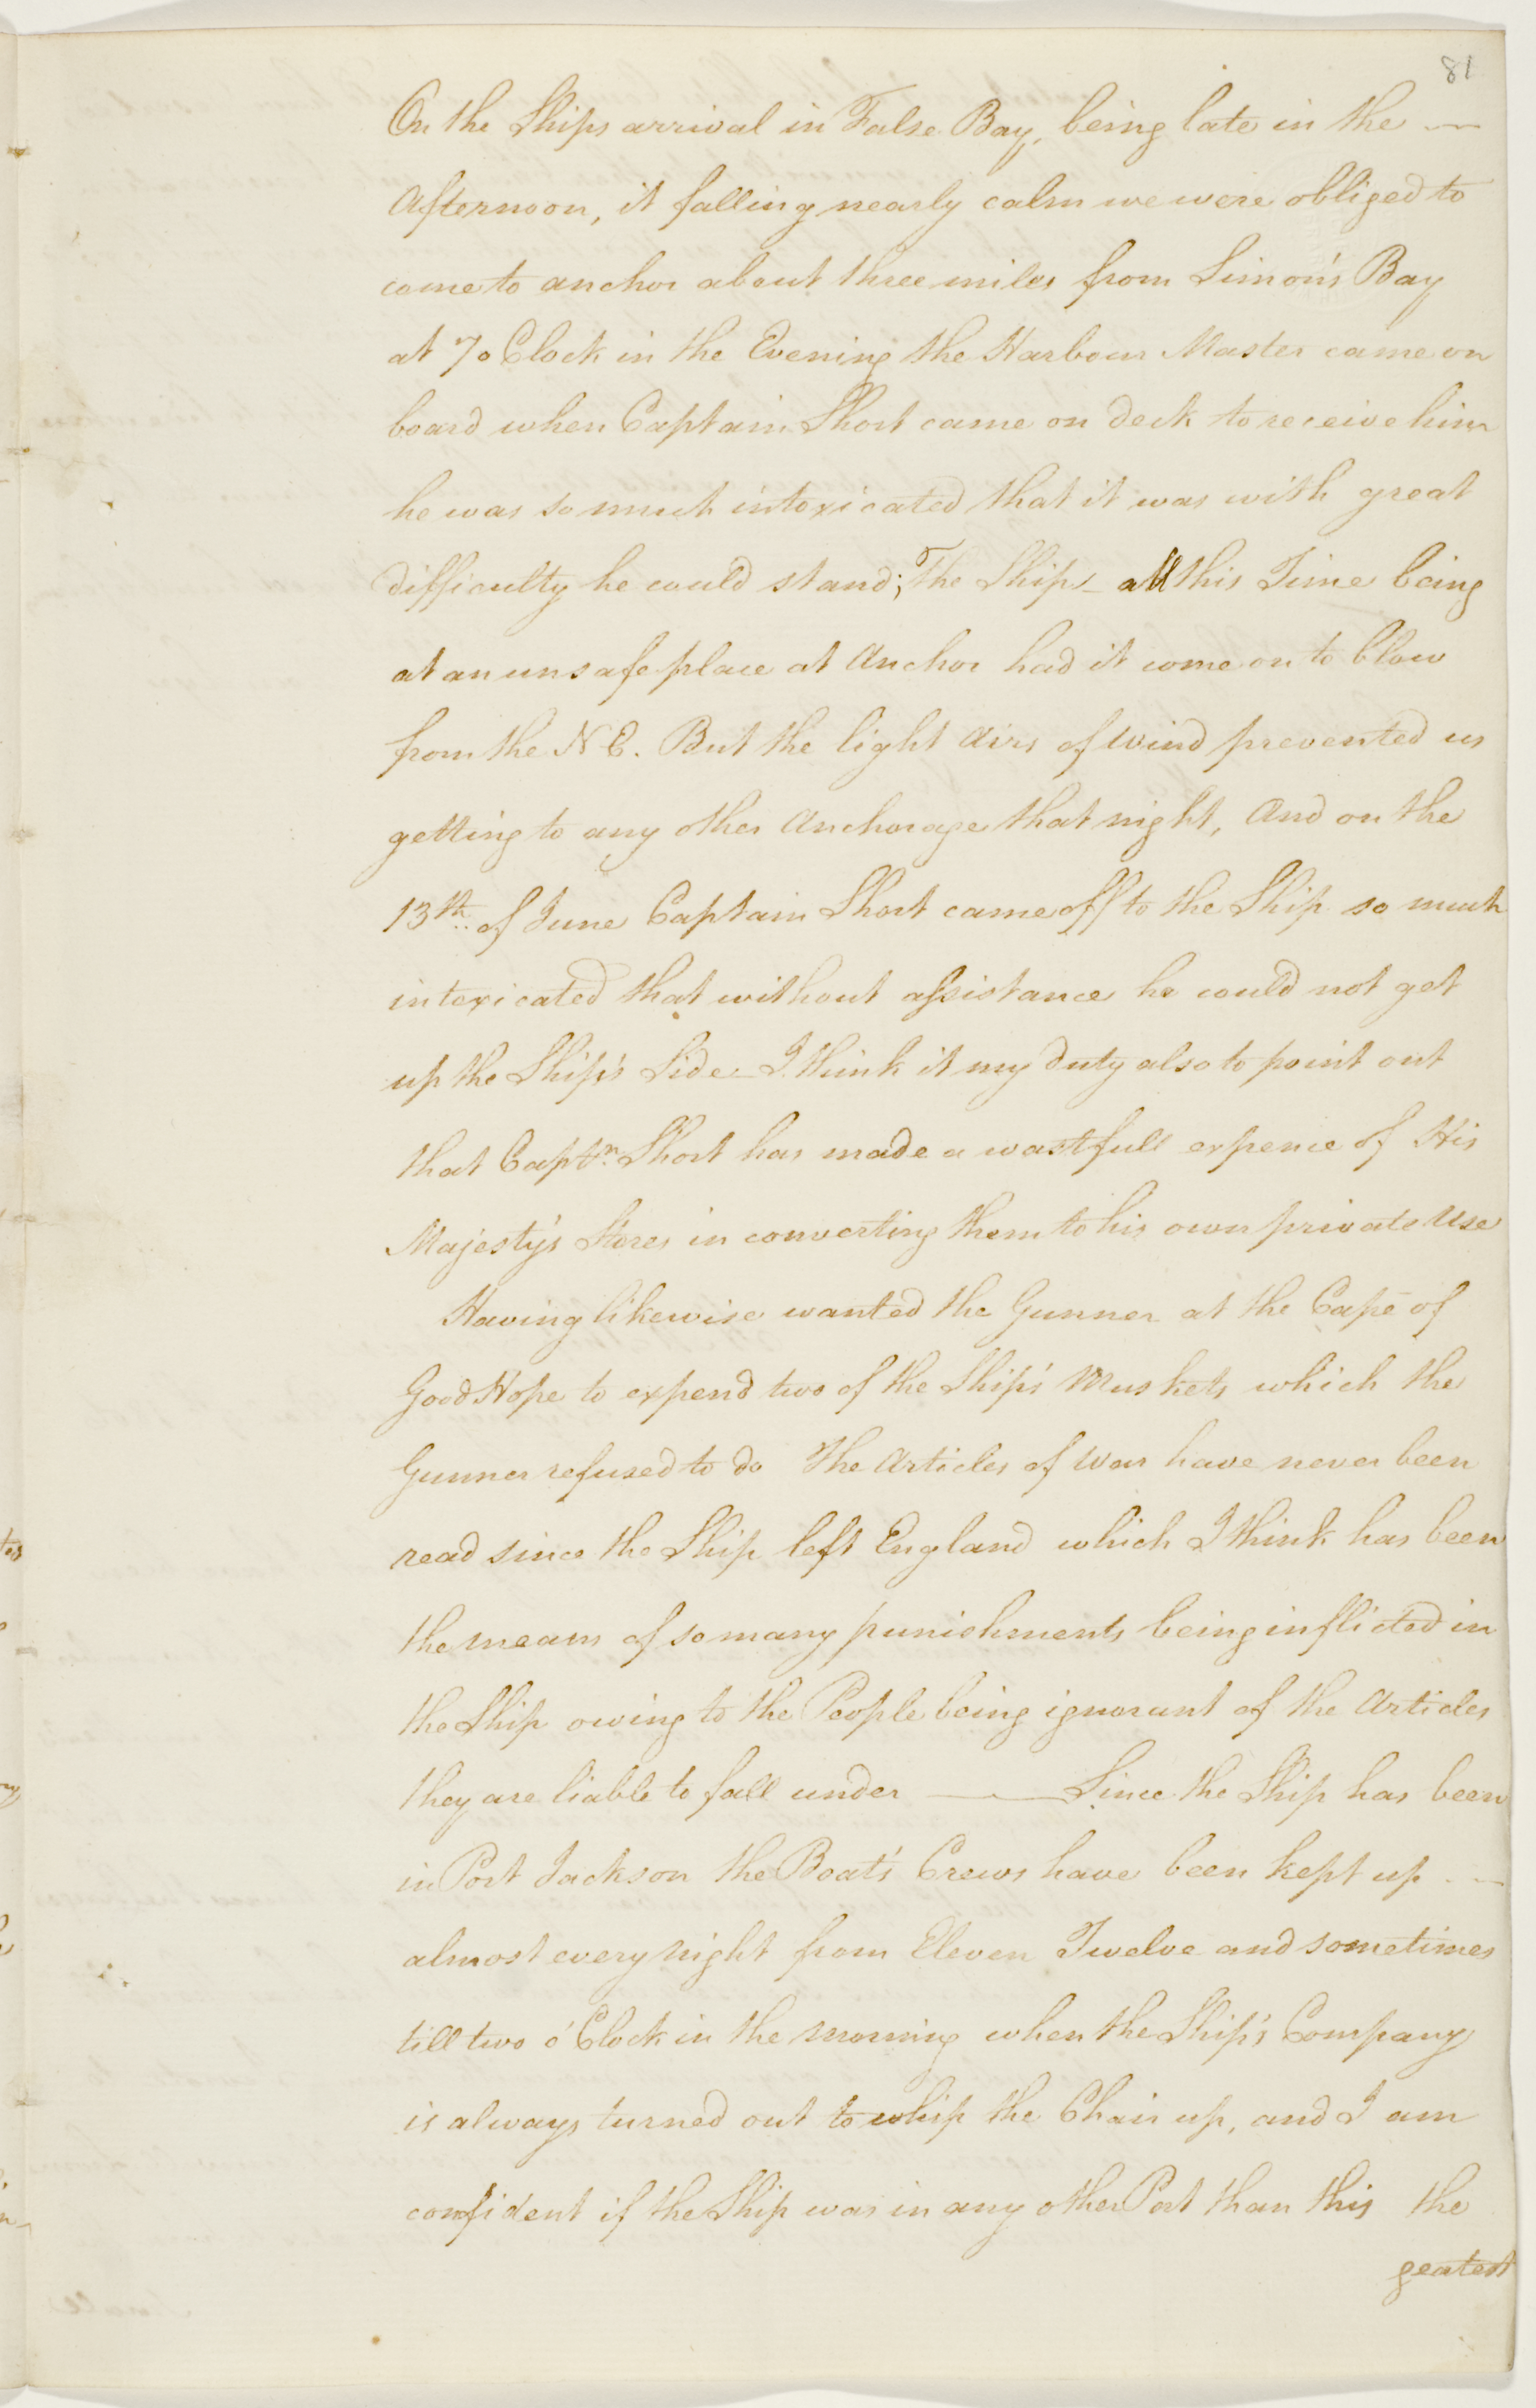 81
On the Ships arrival in False Bay, being late in the —
Afternoon, it falling nearly calm we were obliged to
come to anchor about three miles from Simon's Bay
at 7 o Clock in the Evening the Harbour Master came on
board when Captain Short came on deck to receive him
he was so much intoxicated that it was with great
difficulty he could stand; The Ship - all this Time being
at an unsafe place at Anchor had it come on to blow
from the N E. But the light Airs of Wind prevented us
getting to any other Anchorage that night, And on the
13th. of June Captain Short came off to the Ship so much
intoxicated that without assistance he could not get
up the Ship's Side - I think it my duty also to point out
that Captn. Short has made a wastfull expence of His
Majesty's Stores in converting them to his own private Use
Having likewise wanted the Gunner at the Cape of
Good Hope to expend two of the Ship's Muskets which the
Gunner refused to do The Articles of War have never been
read since the Ship left England which I think has been
the means of so many punishments being inflicted in
the Ship owing to the People being ignorant of the Articles
they are liable to fall under — Since the Ship has been
in Port Jackson the Boat's Crews have been kept up —
almost every night from Eleven Twelve and sometimes
till two o' Clock in the Morning when the Ship's Company
is always turned out to whip the Chair up, and I am
confident if the Ship was in any other Port than this the
geatest